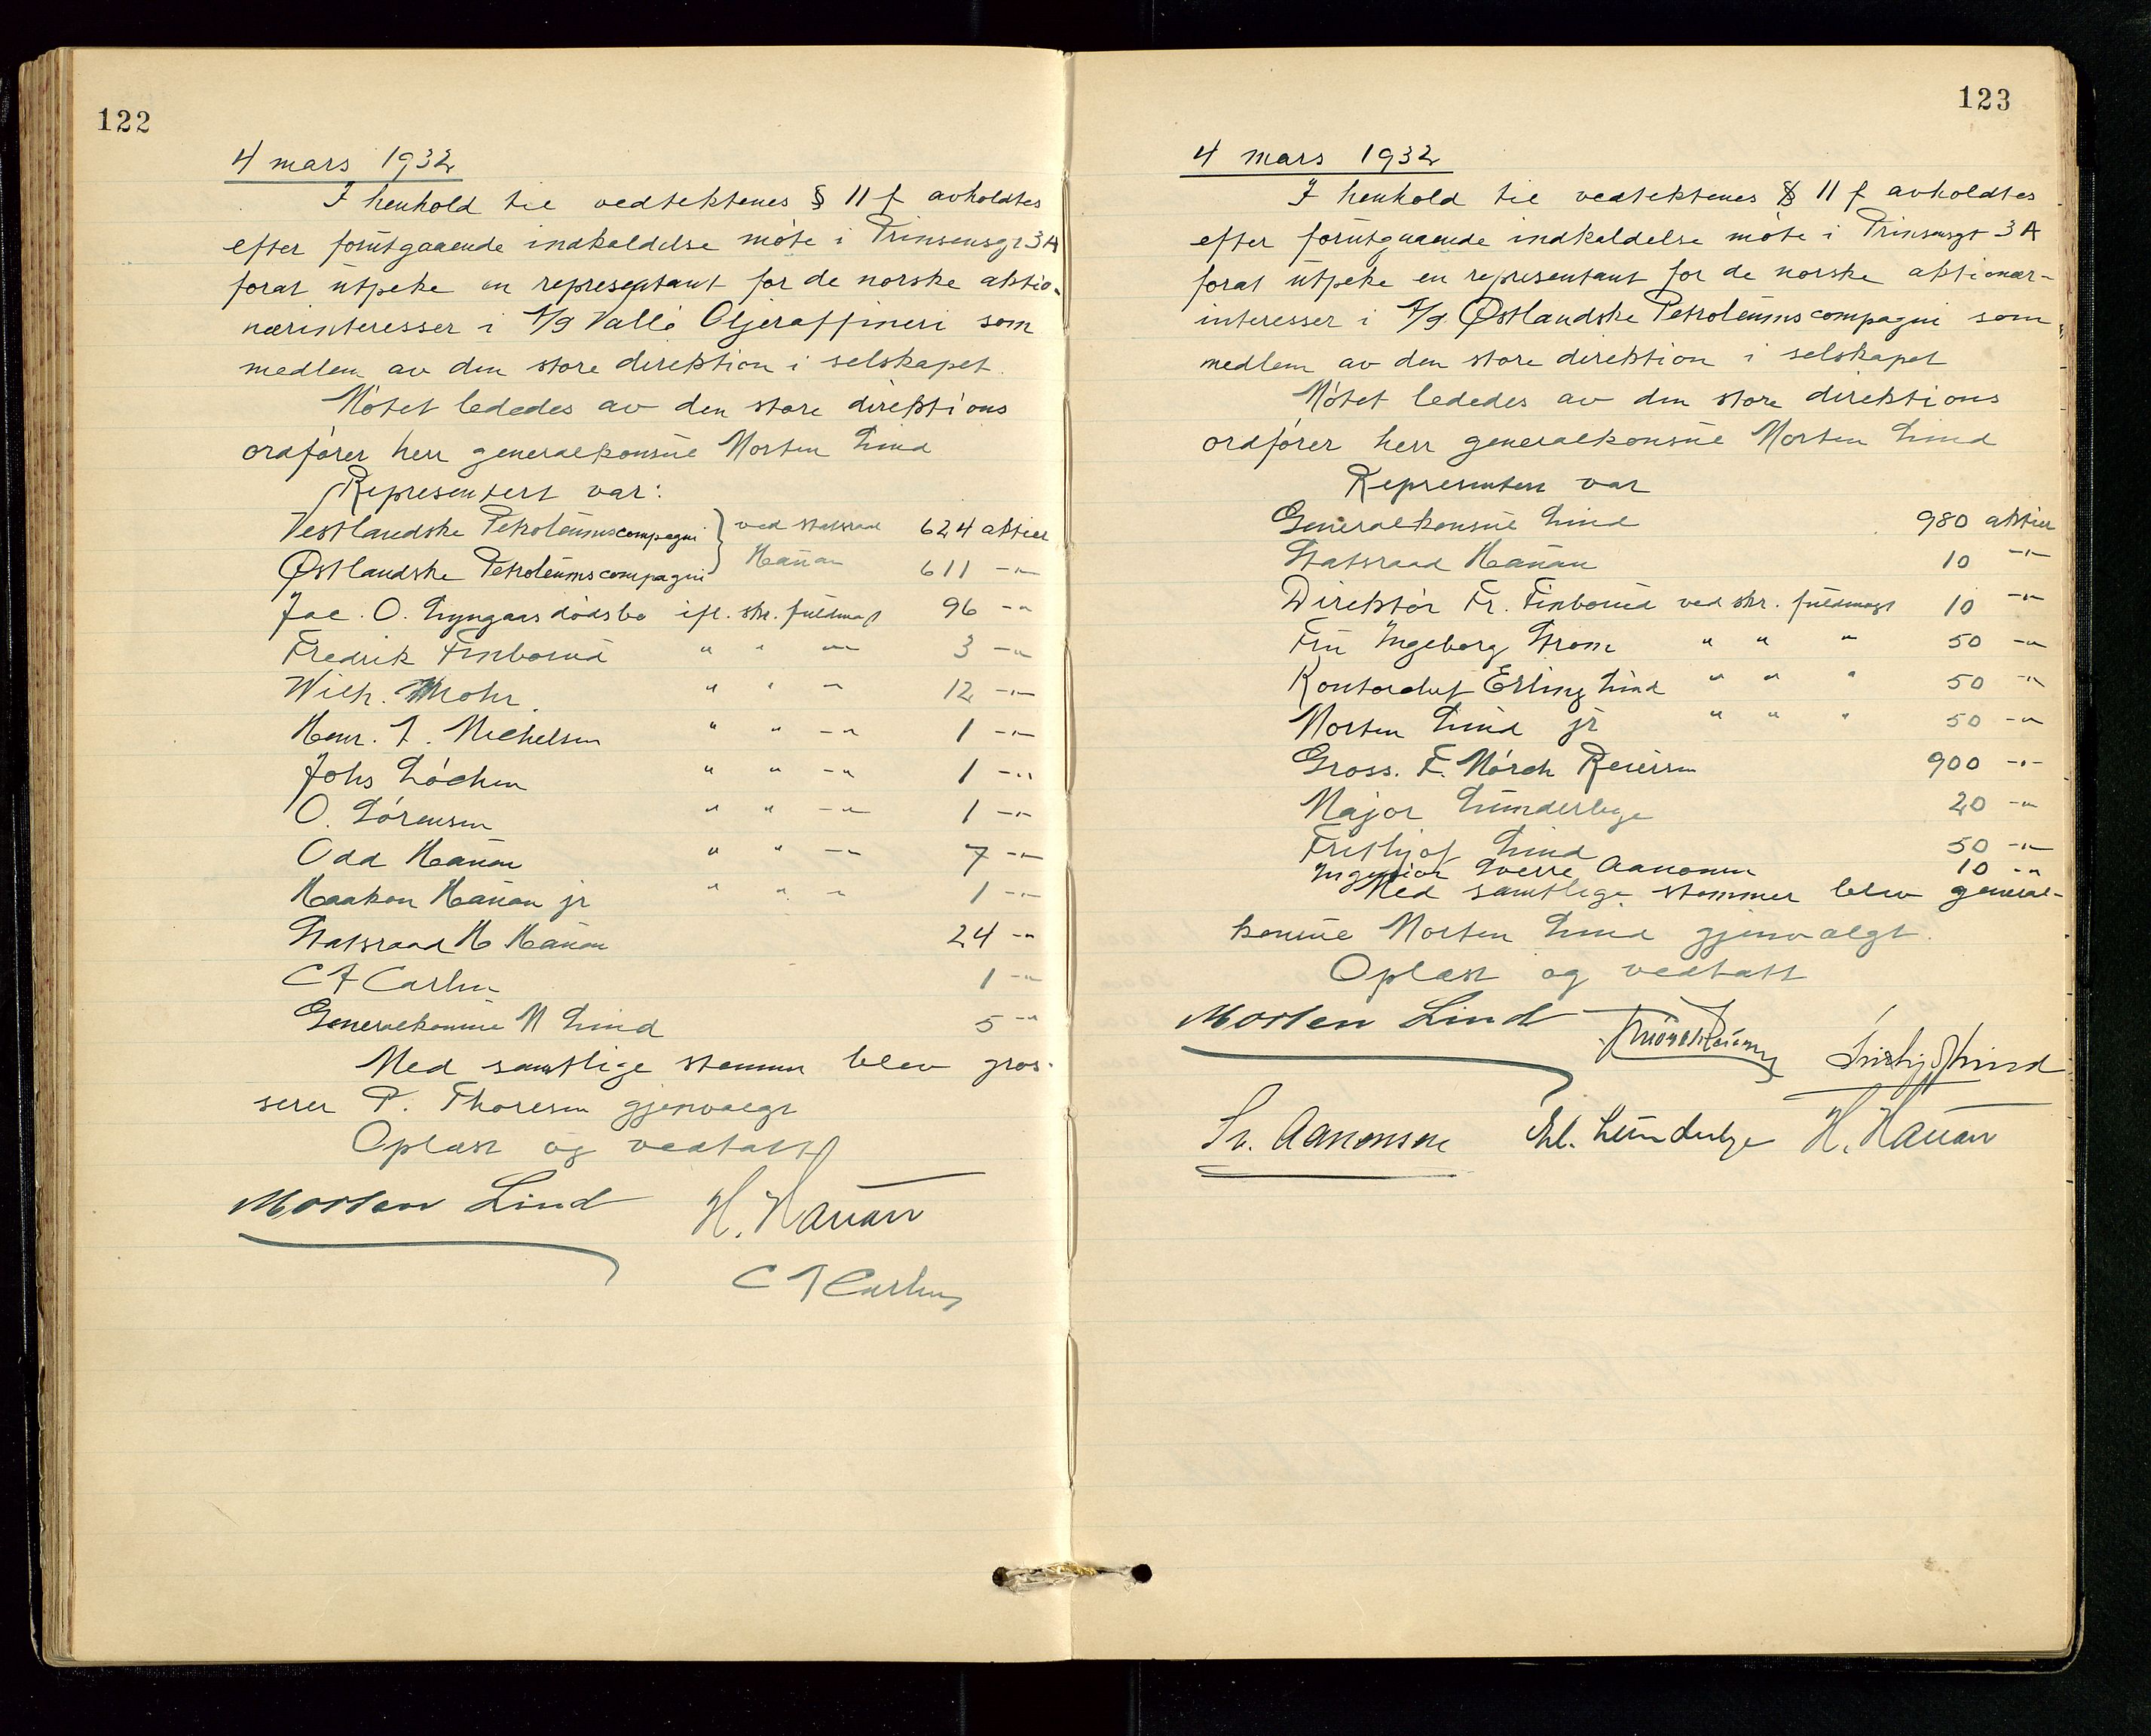 122
4 mars 1932
I henhold til vedtektenes § 11 f avholdtes
efter forutgaaende indkaldelse møte i Prinsensgt 3A
forat utpeke en representant for de norske aktio-
nærinteresser i A/S Vallø Oljeraffineri som
medlem av den store direktion i selskapet.
Møtet lededes av den store direktions
ordfører herr generalkonsul Morten Lind
Representert var:
Vestlandske Petroleumscompagni } ved statsraad 624 aktier
Østlandske Petroleumscompagni } Hauan 611 -"-
Jac. O. Lyngaas dødsbo ifl. skr. fuldmagt 96 -"-
Fredrik Finborud " " -"- 3 -"-
Wilh. Mohr " " -"- 12 -"-
Henr. F. Michelsen " " -"- 1 -"-
Johs Løchen " " -"- 1 -"-
O. Sørensen " " -"- 1 -"-
Odd Hauan " " -"- 7 -"-
Haakon Hauan jr " " -"- 1 -"-
Statsraad H Hauan 24 -"-
C F Carlsen 1 -"-
Generalkonsul M Lind 5 -"-
Med samtlige stemmer blev gros-
serer P. Thoresen gjenvalgt
Oplæst og vedtatt
Morten Lind H. Hauan
C F Carlsen
123
4 mars 1932
I henhold til vedtektenes § 11 f avholdtes
efter forutgaaende indkaldelse møte i Prinsensgt 3A
forat utpeke en representant for de norske aktionær-
interesser i A/S Østlandske Petroleumscompagni som
medlem av den store direktion i selskapet
Møtet lededes av den store direktions
ordfører herr generalkonsul Morten Lind
Representert var
Generalkonsul Lind 980 aktier
Statsraad Hauan 10 -"-
Direktør Fr. Finborud ved skr. fuldmagt 10 -"-
Fru Ingeborg Strøm " " " 50 -"-
Kontorchef Erling Lind " " " 50 -"-
Morten Lind jr " " " 50 -"-
Gross. F. Mørch Reiersen 900 -"-
Major Lunderbye 20 -"-
Frithjof Lind 50 -"-
Ingeniør Sverre Aanonsen 10 -"-
Med samtlige stemmer blev general-
konsul Morten Lind gjenvalgt.
Oplæst og vedtatt
Morten Lind F Mørch Reiersen Frithjof Lind
Sv. Aanonsen Lunderbye H. Hauan